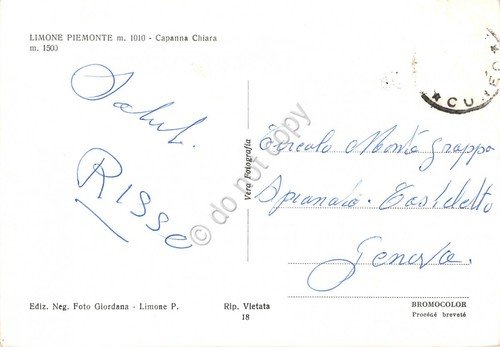 LIMONE PIEMONTE m. 1010 - Capanna Chiara
m. 1500
Saluti
RISSO
Vera Fotografia
Circolo Monte Grappa
Spianata Castelletto
Genova
CUNEO
Ediz. Neg. Foto Giordana - Limone P.
Rip. Vietata
18
BROMOCOLOR
Procédé breveté
© do not copy